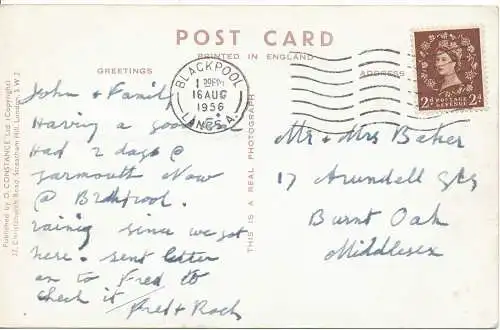 POST CARD
PRINTED IN ENGLAND
GREETINGS
ADDRESS
BLACKPOOL
1
PM
16 AUG
1956
LANCS. A.
POSTAGE
REVENUE
2d 2d
John & Family
Having a good
Had 2 days @
Yarmouth Now
@ B'pool.
raining since we got
here. sent letter
on to Fred to
check it
Fred + Roch
Mr & Mrs Baker
17 Arundell
Burnt Oak
Middlesex
THIS IS A REAL PHOTOGRAPH
Published by O. CONSTANCE Ltd. (Copyright)
Christchurch Road, Streatham Hill, London, S W 2